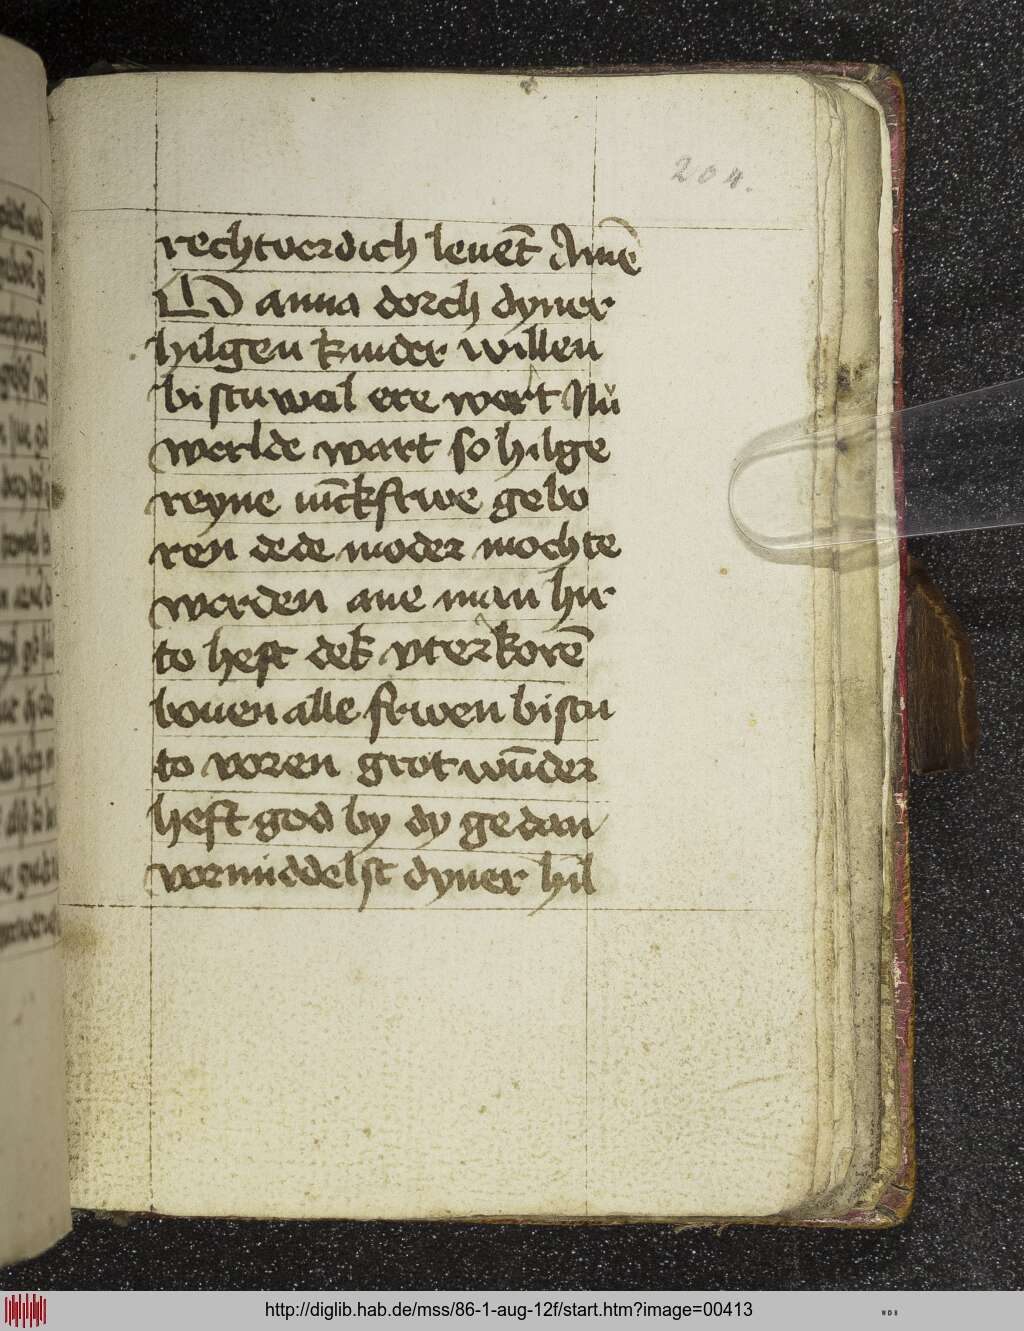 204.
rechtverdich leuēt Amē
O anna dorch dyner
hilgen kinder willen
bistu wal ere wert Nů
werlde wart so hilge
reyne iūckfrwe gebo
ren de de moder mochte
werden ane man hir
to heft dek vterkorē
bouen alle frwen bistu
to voren grot wūder
heft god by dy gedan
vormiddelst dyner hil
http://diglib.hab.de/mss/86-1-aug-12f/start.htm?image=00413